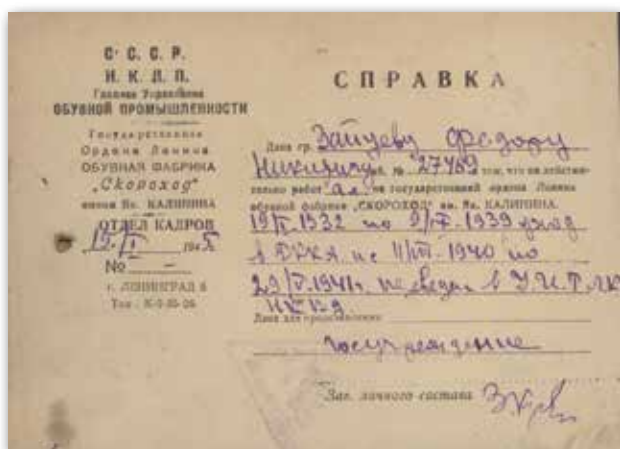 С. С. С. Р.
Н. К. Л. П.
Главное Управление
ОБУВНОЙ ПРОМЫШЛЕННОСТИ
Государственная
Ордена Ленина
ОБУВНАЯ ФАБРИКА
„Скороход"
имени Як. КАЛИНИНА
ОТДЕЛ КАДРОВ
194
№ —
г. ЛЕНИНГРАД
СПРАВКА
Дана гр. Зайцеву Федору
Никитичу № 27489 в том, что он действи-
тельно работ на государственной ордена Ленина
обувной фабрике „СКОРОХОД" им. Як. КАЛИНИНА.
1932 по 1939 уход
в РККА и с 1940 по
1941г. в
НКВД
Дана для представления
госучреждение
Зав. личного состава